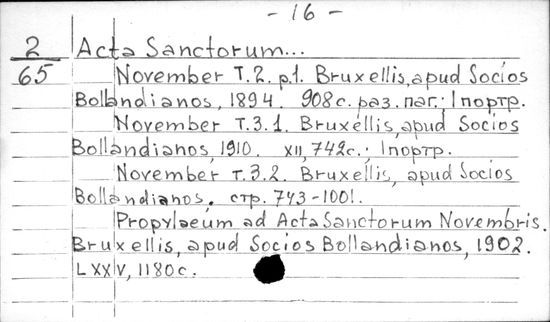 - 16 -
2 Acta Sanctorum...
65 November T.2. p.1. Bruxellis, apud Socios
Bollandianos, 1894. 908 с. раз. паг.; 1 портр.
November T.3.1. Bruxellis, apud Socios
Bollandianos, 1910. XII, 742 с.; 1 портр.
November T.3.2. Bruxellis, apud Socios
Bollandianos. стр. 743-1001.
Propylaeum ad Acta Sanctorum Novembris.
Bruxellis, apud Socios Bollandianos, 1902.
LXXIV, 1180 с.